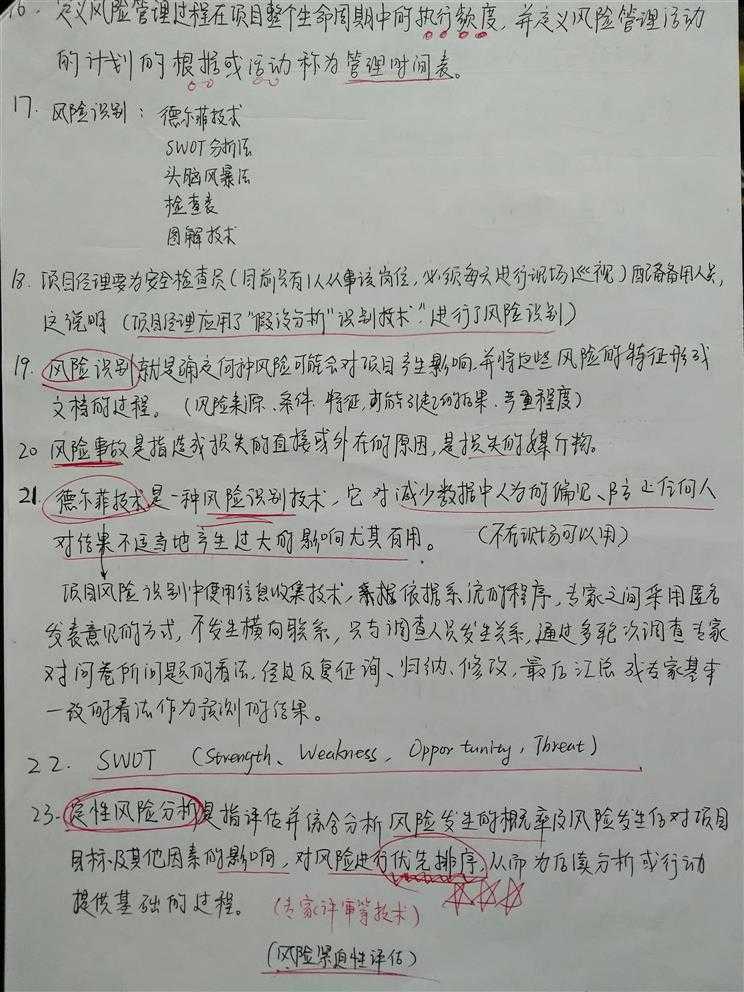 16. 定义风险管理过程在项目整个生命周期中的执行频度，并定义风险管理活动
的计划的根据或活动称为管理时间表。
17. 风险识别： 德尔菲技术
SWOT分析法
头脑风暴法
检查表
图解技术
18. 项目经理要为安全检查员（目前只有1人从事该岗位，必须每天进行现场巡视）配备备用人员，
这说明（项目经理应用了"假设分析"识别技术"进行了风险识别）
19. 风险识别就是确定何种风险可能会对项目产生影响，并将这些风险的特征形成
文档的过程。（风险来源、条件、特征，可能引起的结果、严重程度）
20 风险事故是指造成损失的直接或外在的原因，是损失的媒介物。
21. 德尔菲技术是一种风险识别技术，它对减少数据中人为的偏见、防止任何人
对结果不适当地产生过大的影响尤其有用。（不在现场可以用）
项目风险识别中使用信息收集技术，依据系统的程序，专家之间采用匿名
发表意见的方式，不发生横向联系，只与调查人员发生关系，通过多轮次调查专家
对问卷所问问题的看法，经过反复征询、归纳、修改，最后汇总成专家基本
一致的看法作为预测的结果。
22. SWOT （Strength、Weakness，Opportunity，Threat）
23. 定性风险分析是指评估并综合分析风险发生的概率及风险发生后对项目
目标及其他因素的影响，对风险进行优先排序，从而为后续分析或行动
提供基础的过程。（专家评审等技术）
（风险紧迫性评估）